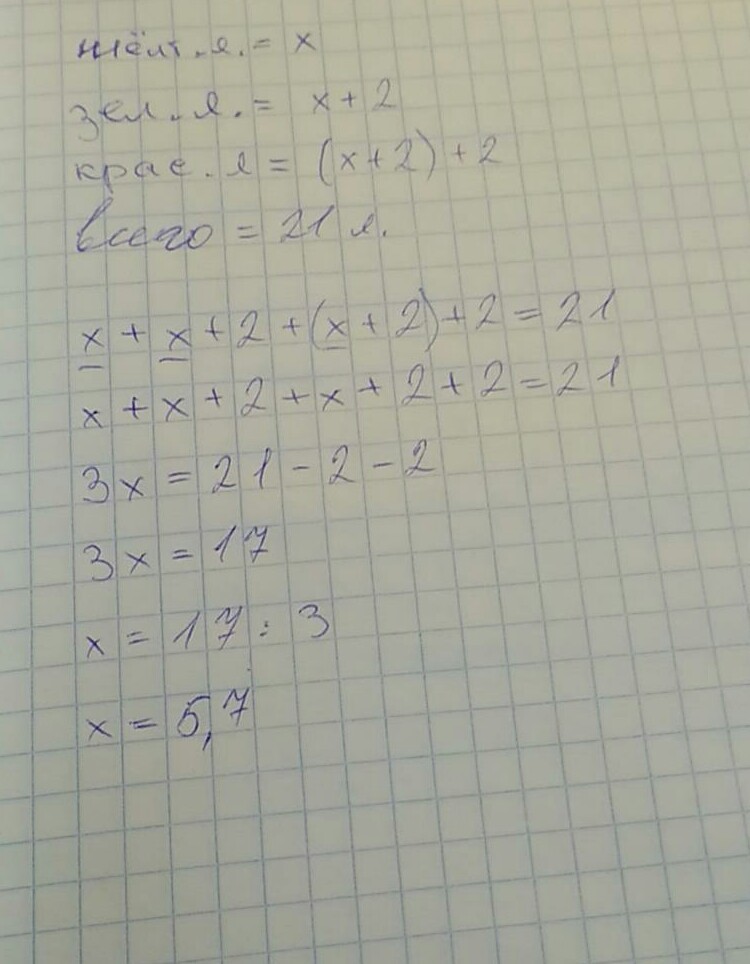 жёлт. я. = x
зел. я. = x + 2
крас. я = (x+2) + 2
всего = 21 я.
x + x + 2 + (x + 2) + 2 = 21
x + x + 2 + x + 2 + 2 = 21
3x = 21 - 2 - 2
3x = 17
x = 17 : 3
x = 5,7